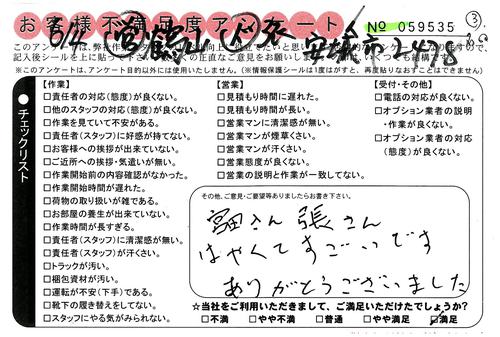 お客様不満足度アンケート
No 059535
③
※このアンケートは、アンケート目的以外には使用いたしません。(※情報保護シールは1度はがすと、再度貼りなおすことはできません)
チェックリスト
【作業】
□責任者の対応(態度)が良くない。
□他のスタッフの対応(態度)が良くない。
□作業を見ていて不安がある。
□責任者(スタッフ)に好感が持てない。
□お客様への挨拶が出来ていない。
□ご近所への挨拶・気遣いが無い。
□作業開始前の内容確認がなかった。
□作業開始時間が遅れた。
□荷物の取り扱いが雑である。
□お部屋の養生が出来ていない。
□作業時間が長すぎる。
□責任者(スタッフ)に清潔感が無い。
□責任者(スタッフ)が汗くさい。
□トラックが汚い。
□梱包資材が汚い。
□運転が不安(下手)である。
□靴下の履き替えをしてない。
□スタッフにやる気がみられない。
【営業】
□見積もり時間に遅れた。
□見積もり時間が長い。
□営業マンに清潔感が無い。
□営業マンが煙草くさい。
□営業マンが汗くさい。
□営業態度が良くない。
□営業の説明と作業が一致してない。
【受付・その他】
□電話の対応が良くない。
□オプション業者の説明
・作業が良くない。
□オプション業者の対応
(態度)が良くない。
その他、ご意見・ご要望等ありましたらお書き下さい。
富田さん 張さん
はやくてすごいです
ありがとうございました
☆当社をご利用いただきまして、ご満足いただけたでしょうか?
□不満 □やや不満 □普通 □やや満足 □満足